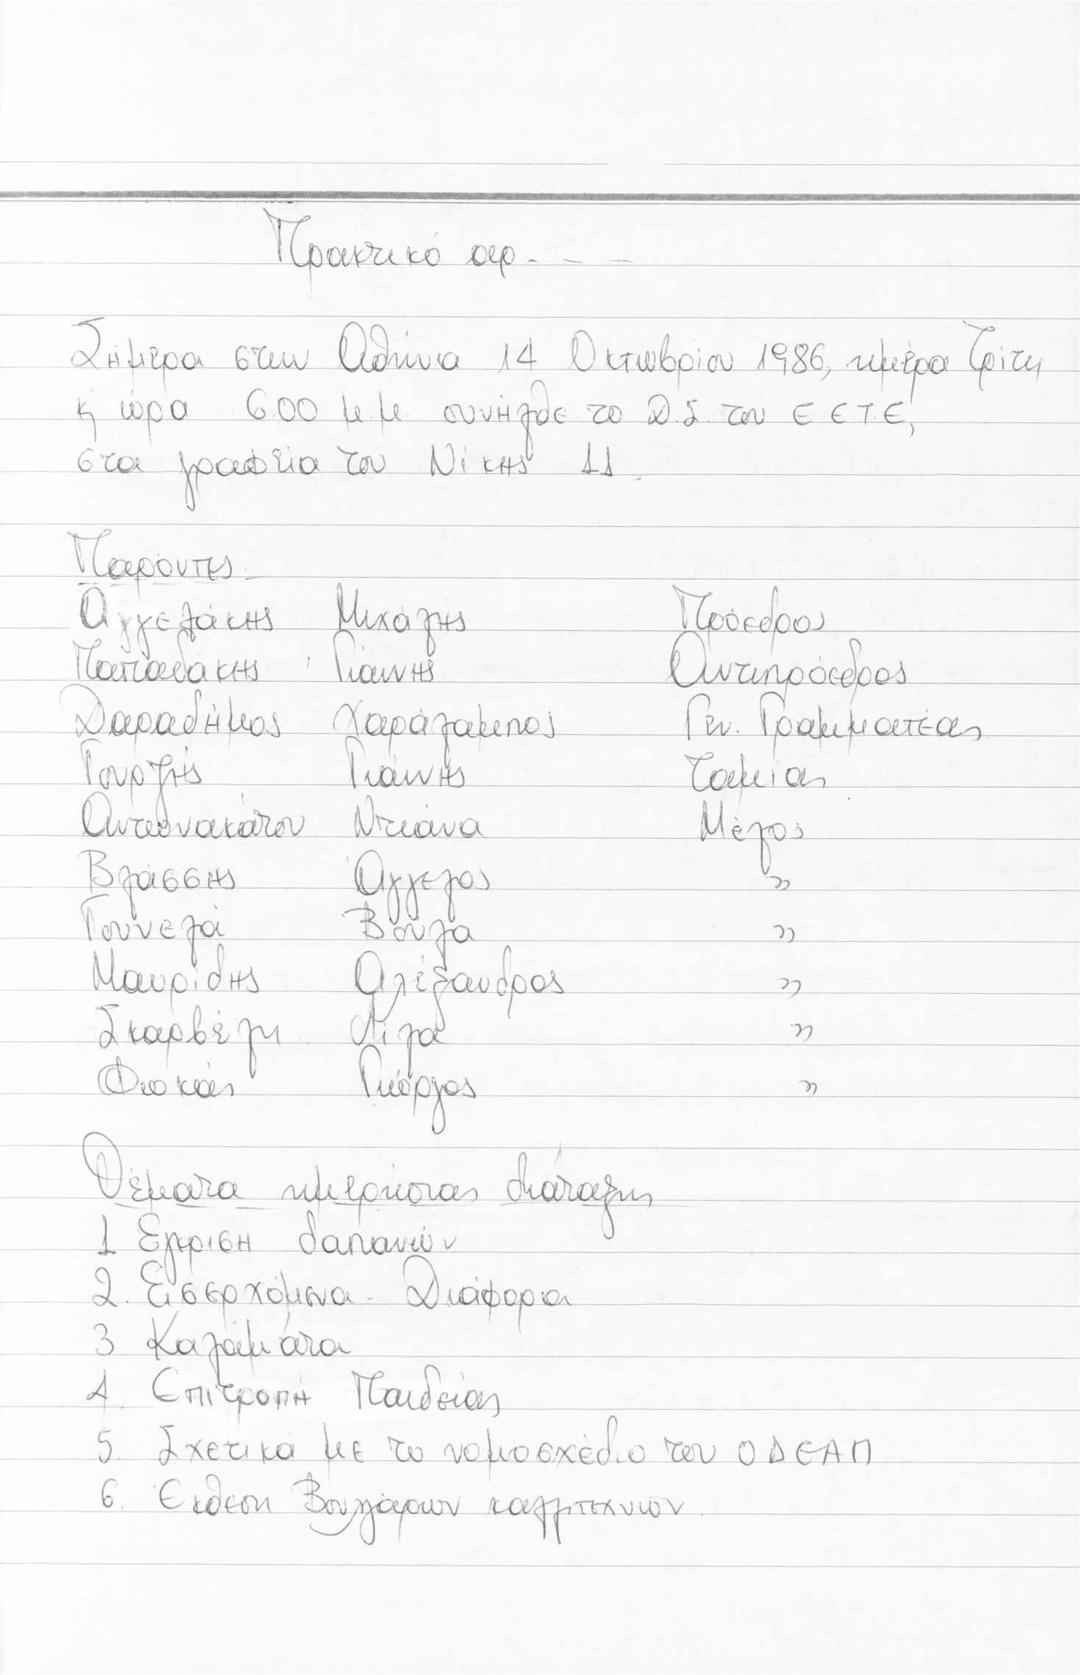 Πρακτικό αρ. - - -
Σήμερα στην Αθήνα 14 Οκτωβρίου 1986, ημέρα Τρίτη
κ ώρα 6.00 μ.μ. συνήλθε το Δ.Σ. του Ε Ε Τ.Ε,
στα γραφεία του Νίκης 11.
Παρόντες.
Αγγελάκης Μιχάλης Πρόεδρος
Παπαδάκης Γιάννης Αντιπρόεδρος
Δαραδήμος Χαράλαμπος Γεν. Γραμματέας
Γουρζής Γιάννης Ταμίας
Αντωνακάτου Ντιάνα Μέλος
Βλάσσης Άγγελος "
Γουνελά Βούλα "
Μαυρίδης Αλέξανδρος "
Σκαρβέλη Λίλα "
Φωκάς Γιώργος "
Θέματα ημερήσιας διάταξης
1 Εγκριση δαπανών
2. Εισερχόμενα - Διάφορα
3 Καλαμάτα
4. Επιτροπή Παιδείας
5. Σχετικά με το νομοσχέδιο του ΟΔΕΑΠ
6. Εκθεση Βουλγάρων καλλιτεχνών.